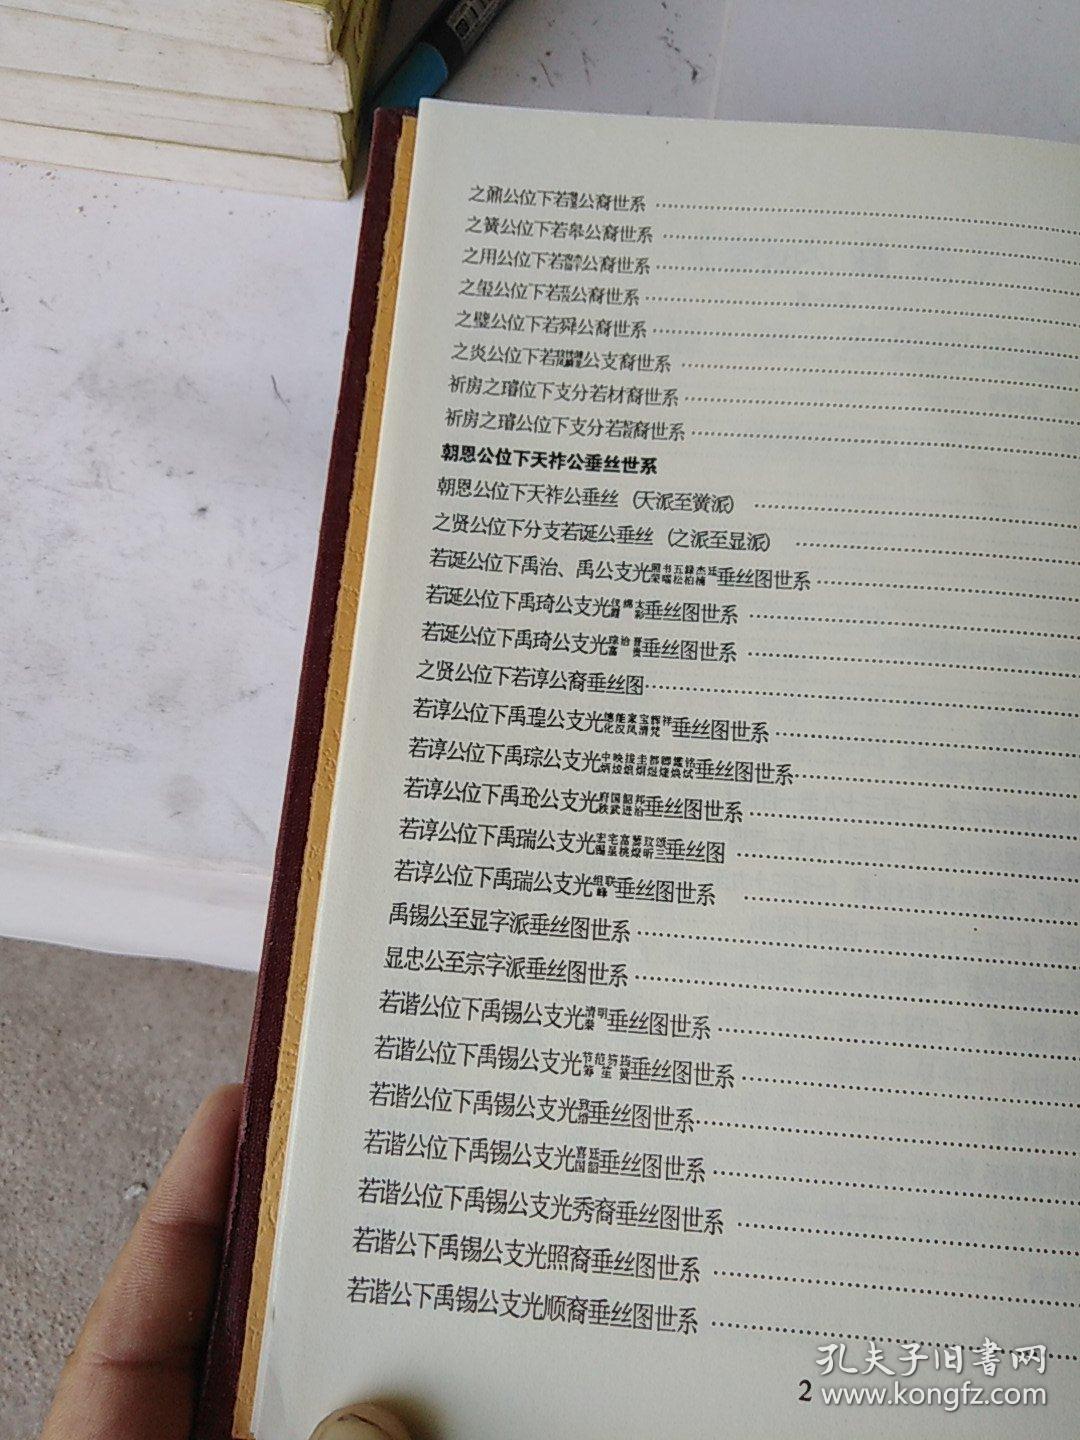 之鼐公位下若公裔世系
之簧公位下若皋公裔世系
之用公位下若公裔世系
之玺公位下若公裔世系
之璧公位下若舜公裔世系
之炎公位下若公支裔世系
祈房之璿位下支分若材裔世系
祈房之璿公位下支分若裔世系
朝恩公位下天祚公垂丝世系
朝恩公位下天祚公垂丝（天派至黄派）
之贤公位下分支若诞公垂丝（之派至显派）
若诞公位下禹治、禹公支光照书五録杰廷荣端松柏楠垂丝图世系
若诞公位下禹琦公支光垂丝图世系
若诞公位下禹琦公支光垂丝图世系
之贤公位下若谆公裔垂丝图
若谆公位下禹瑝公支光德能家宝辉祥化汉凤清梵垂丝图世系
若谆公位下禹琮公支光垂丝图世系
若谆公位下禹玱公支光府国韶邦秩武进治垂丝图世系
若谆公位下禹瑞公支光垂丝图
若谆公位下禹瑞公支光组联峰垂丝图世系
禹锡公至显字派垂丝图世系
显忠公至宗字派垂丝图世系
若谐公位下禹锡公支光清明秦垂丝图世系
若谐公位下禹锡公支光垂丝图世系
若谐公位下禹锡公支光垂丝图世系
若谐公位下禹锡公支光喜廷国韶垂丝图世系
若谐公位下禹锡公支光秀裔垂丝图世系
若谐公下禹锡公支光照裔垂丝图世系
若谐公下禹锡公支光顺裔垂丝图世系
2
孔夫子旧書网
www.kongfz.com